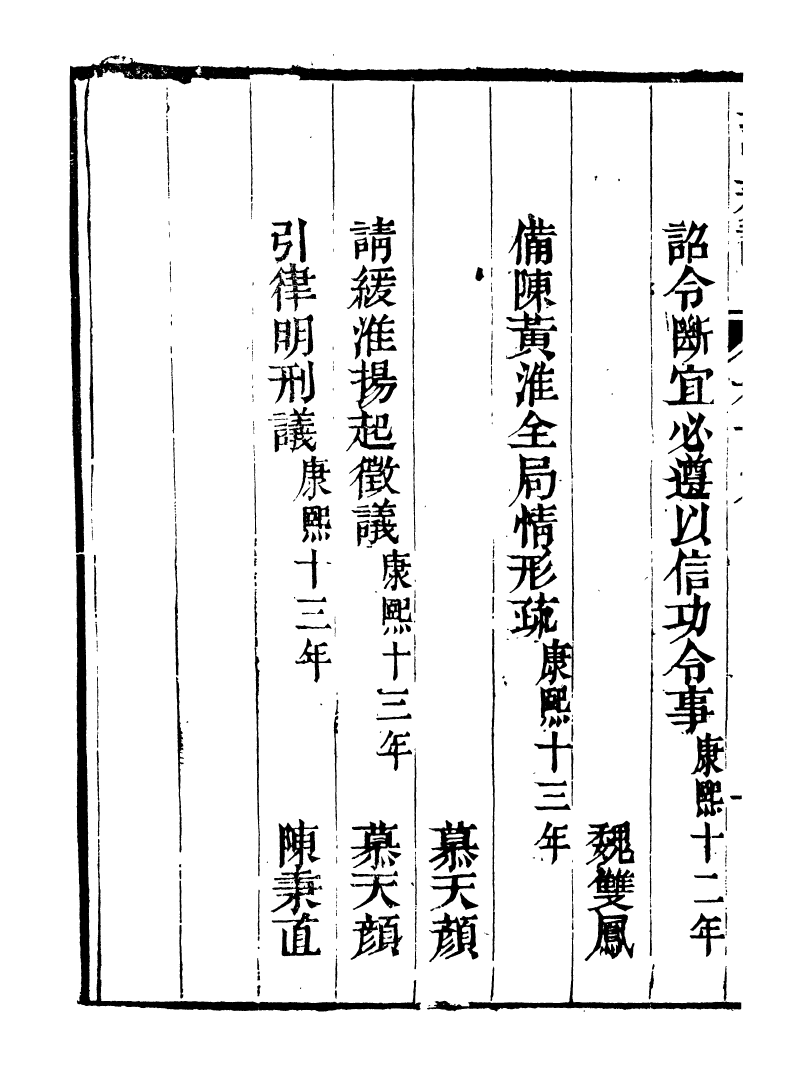 詔令斷宜必遵以信功令事康熙十二年
魏雙鳳
備陳黃淮全局情形疏康熙十三年
慕天顔
請緩淮揚起徵議康熙十三年　慕天顔
引律明刑議康熙十三年　陳秉直